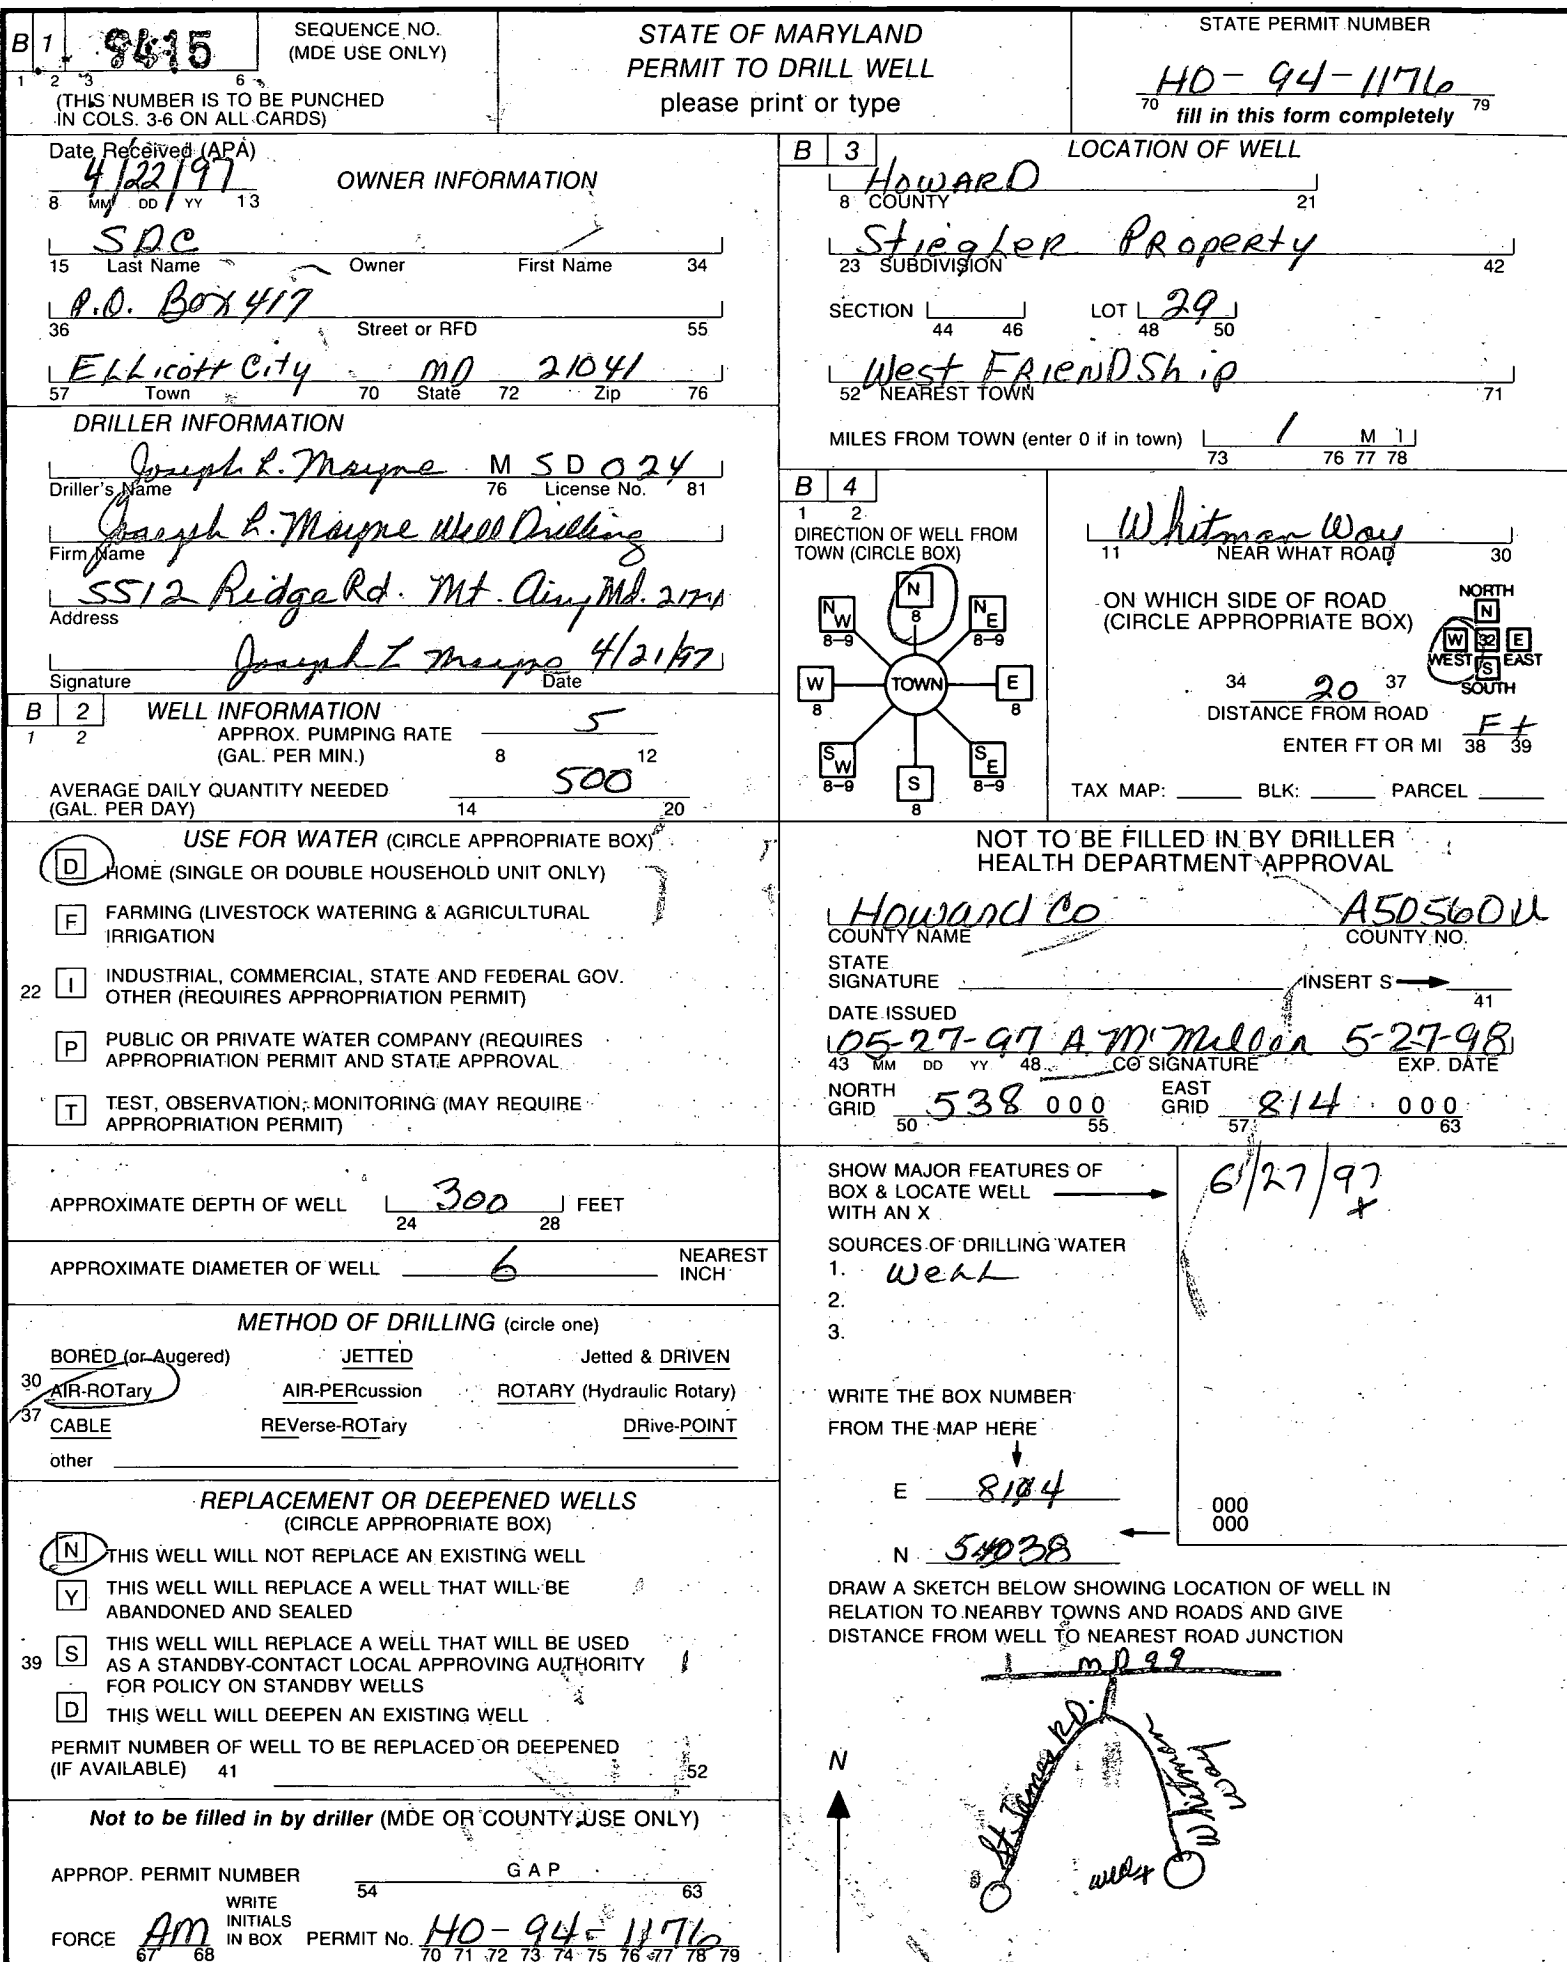 B 1 9415 SEQUENCE NO. (MDE USE ONLY)
1 2 3 6
(THIS NUMBER IS TO BE PUNCHED
IN COLS. 3-6 ON ALL CARDS)
STATE OF MARYLAND
PERMIT TO DRILL WELL
please print or type
STATE PERMIT NUMBER
HO-94-1176
70 fill in this form completely 79
Date Received (APA)
4/22/97
8 MM DD YY 13
OWNER INFORMATION
SDC
15 Last Name Owner First Name 34
P.O. Box 417
36 Street or RFD 55
Ellicott City MD 21041
57 Town 70 State 72 Zip 76
DRILLER INFORMATION
Joseph L. Mayne M S D 024
Driller's Name 76 License No. 81
Joseph L. Mayne Well Drilling
Firm Name
5512 Ridge Rd. Mt. Airy Md.
Address
Joseph L Mayne 4/21/97
Signature Date
B 2 WELL INFORMATION
1 2
APPROX. PUMPING RATE 5
(GAL. PER MIN.) 8 12
AVERAGE DAILY QUANTITY NEEDED 500
(GAL. PER DAY) 14 20
USE FOR WATER (CIRCLE APPROPRIATE BOX)
D HOME (SINGLE OR DOUBLE HOUSEHOLD UNIT ONLY)
F FARMING (LIVESTOCK WATERING & AGRICULTURAL
IRRIGATION
22 I INDUSTRIAL, COMMERCIAL, STATE AND FEDERAL GOV.
OTHER (REQUIRES APPROPRIATION PERMIT)
P PUBLIC OR PRIVATE WATER COMPANY (REQUIRES
APPROPRIATION PERMIT AND STATE APPROVAL
T TEST, OBSERVATION, MONITORING (MAY REQUIRE
APPROPRIATION PERMIT)
APPROXIMATE DEPTH OF WELL 300 FEET
24 28
APPROXIMATE DIAMETER OF WELL 6 NEAREST
INCH
METHOD OF DRILLING (circle one)
BORED (or Augered) JETTED Jetted & DRIVEN
30 AIR-ROTary AIR-PERcussion ROTARY (Hydraulic Rotary)
37 CABLE REVerse-ROTary DRive-POINT
other
REPLACEMENT OR DEEPENED WELLS
(CIRCLE APPROPRIATE BOX)
N THIS WELL WILL NOT REPLACE AN EXISTING WELL
Y THIS WELL WILL REPLACE A WELL THAT WILL BE
ABANDONED AND SEALED
39 S THIS WELL WILL REPLACE A WELL THAT WILL BE USED
AS A STANDBY-CONTACT LOCAL APPROVING AUTHORITY
FOR POLICY ON STANDBY WELLS
D THIS WELL WILL DEEPEN AN EXISTING WELL
PERMIT NUMBER OF WELL TO BE REPLACED OR DEEPENED
(IF AVAILABLE) 41 52
Not to be filled in by driller (MDE OR COUNTY USE ONLY)
APPROP. PERMIT NUMBER G A P
54 63
FORCE AM WRITE INITIALS IN BOX PERMIT No. HO-94-1176
67 68 70 71 72 73 74 75 76 77 78 79
B 3 LOCATION OF WELL
Howard
8 COUNTY 21
Stiegler Property
23 SUBDIVISION 42
SECTION LOT 29
44 46 48 50
West Friendship
52 NEAREST TOWN 71
MILES FROM TOWN (enter 0 if in town) 1 M I
73 76 77 78
B 4
1 2
DIRECTION OF WELL FROM
TOWN (CIRCLE BOX)
N
8
NW NE
8-9 8-9
W TOWN E
8 8
SW SE
8-9 8-9
S
8
Whitman Way
11 NEAR WHAT ROAD 30
ON WHICH SIDE OF ROAD
(CIRCLE APPROPRIATE BOX)
NORTH
N
W 32 E
WEST S EAST
SOUTH
34 20 37
DISTANCE FROM ROAD
ENTER FT OR MI Ft
38 39
TAX MAP: BLK: PARCEL
NOT TO BE FILLED IN BY DRILLER
HEALTH DEPARTMENT APPROVAL
Howard Co A50560U
COUNTY NAME COUNTY NO.
STATE
SIGNATURE INSERT S
41
DATE ISSUED
05-27-97 A. McMillan 5-27-98
43 MM DD YY 48 CO SIGNATURE EXP. DATE
NORTH GRID 538 000 EAST GRID 814 000
50 55 57 63
SHOW MAJOR FEATURES OF
BOX & LOCATE WELL
WITH AN X
6/27/97
x
SOURCES OF DRILLING WATER
1. Well
2.
3.
WRITE THE BOX NUMBER
FROM THE MAP HERE
E
N
000
000
DRAW A SKETCH BELOW SHOWING LOCATION OF WELL IN
RELATION TO NEARBY TOWNS AND ROADS AND GIVE
DISTANCE FROM WELL TO NEAREST ROAD JUNCTION
MD 99
St. James RD.
Whitman Way
N
well x